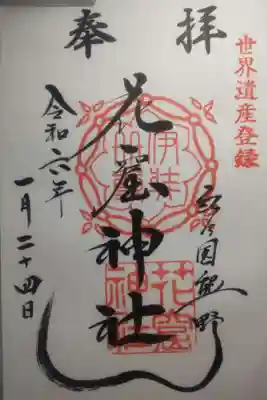 世界遺産登録
奉拝
国熊野
花窟神社
令和六年
一月二十四日
花窟
神社